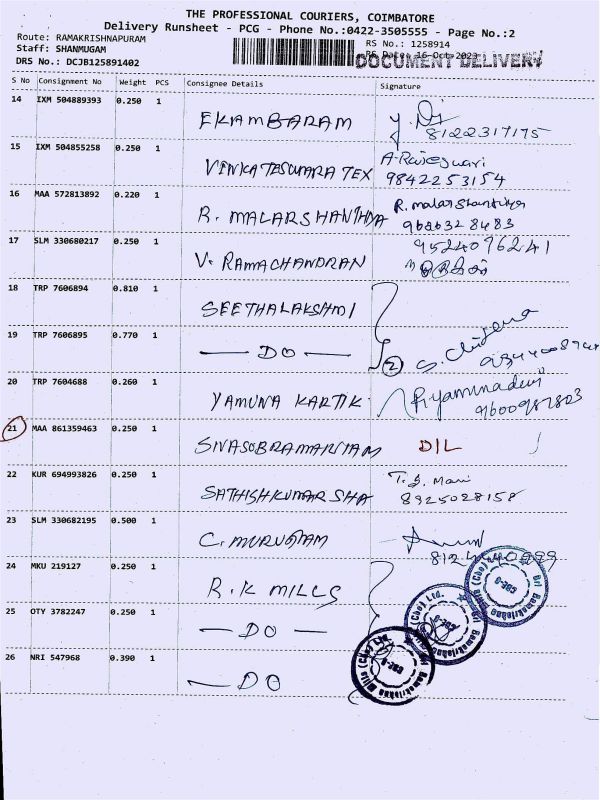 THE PROFESSIONAL COURIERS, COIMBATORE
Delivery Runsheet - PCG - Phone No.:0422-3505555 - Page No.:2
Route: RAMAKRISHNAPURAM
Staff: SHANMUGAM
DRS No.: DCJB125891402
RS No.: 1258914
RS Date: 16-Oct-2023
DOCUMENT DELIVERY
S No Consignment No Weight PCS Consignee Details Signature
14 IXM 504889393 0.250 1 EKAMBARAM
8122317175
15 IXM 504855258 0.250 1 VENKATESWARA TEX A. Rajeswari
9842253154
16 MAA 572813892 0.220 1 R. MALARSHANTHYA R. malarshanthya
9626328483
17 SLM 330680217 0.250 1 V. RAMACHANDRAN 9524096241
18 TRP 7606894 0.810 1 SEETHALAKSHMI
19 TRP 7606895 0.770 1 — DO — 2
20 TRP 7604688 0.260 1 YAMUNA KARTIK P. Yamunadevi
9600987803
21 MAA 861359463 0.250 1 SIVASUBRAMANIAM DIL
22 KUR 694993826 0.250 1 SATHISHKUMAR SHA T. S. Mani
8925028158
23 SLM 330682195 0.500 1 C. MURUGAM
24 MKU 219127 0.250 1 R. K MILLS
25 OTY 3782247 0.250 1 — DO —
26 NRI 547968 0.390 1 — DO
Sri Ramakrishna Mills (Cbe) Ltd.
CBE-6
Sri Ramakrishna Mills (Cbe) Ltd.
CBE-6
Sri Ramakrishna Mills (Cbe) Ltd.
CBE-6